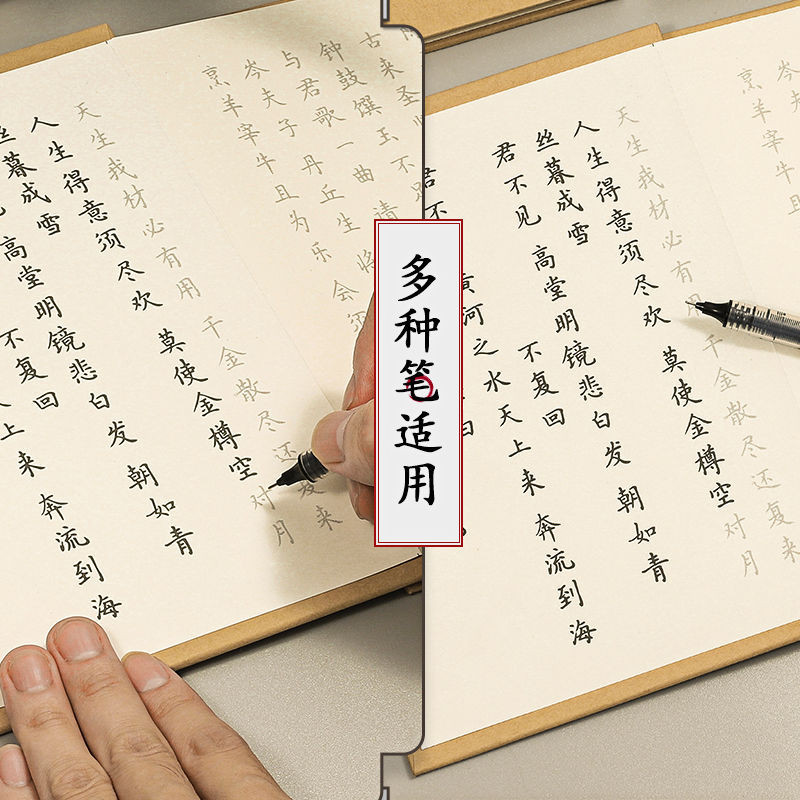 多种笔适用
上来 奔流到海
不复回
高堂明镜悲白发 朝如青
丝暮成雪
人生得意须尽欢 莫使金樽空对月
天生我材必有用 千金散尽还复来
烹羊宰牛且为乐 会须
岑夫子 丹丘生 将
与君歌一曲 请
钟鼓馔玉不足
古来圣
君不
黄河之水天上来 奔流到海
不复回
君不见 高堂明镜悲白发 朝如青
丝暮成雪
人生得意须尽欢 莫使金樽空对月
天生我材必有用 千金散尽还复来
烹羊宰牛且
岑夫子